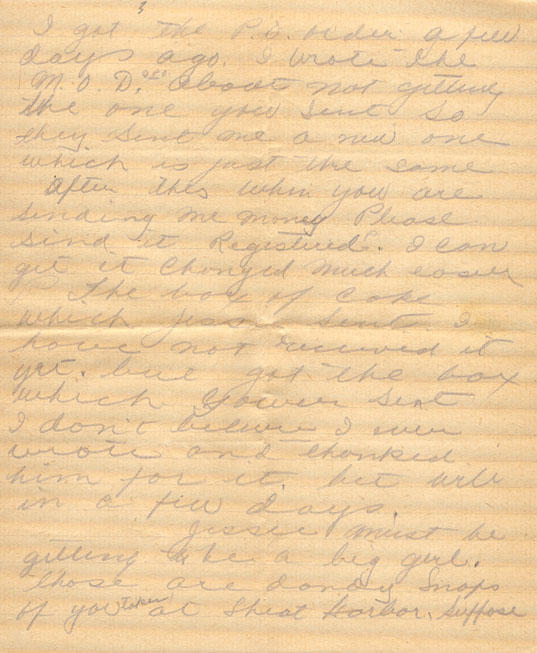 3
I got the P.O. order a few
days ago. I wrote the
M.O.D. about not getting
the one you sent so
they sent me a new one
which is just the same
After this when you are
sending me money Please
send it Registered. I can
get it changed much easier
The box of cake
which Jessie sent I
have not received it
yet. but got the box
which sent
I don't believe I ever
wrote and thanked
him for it, but will
in a few days.
Jessie must be
getting to be a big girl.
Those are dandy snaps
of you taken at Sheet Harbor. Suppose